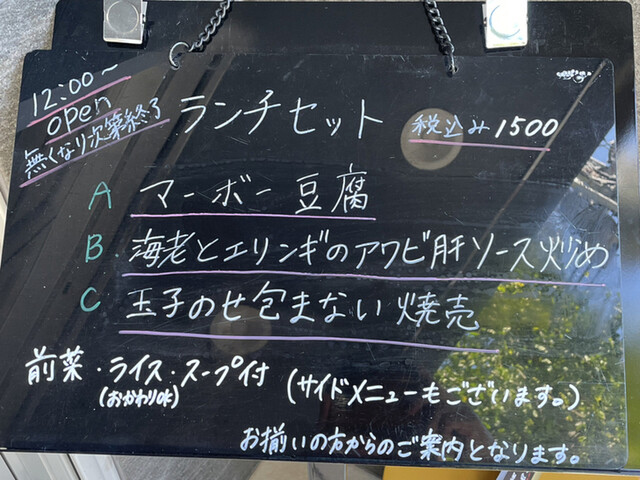 12:00～
open
無くなり次第終了
ランチセット
税込み1500
A マーボー豆腐
B 海老とエリンギのアワビ肝ソース炒め
C 玉子のせ包まない焼売
前菜・ライス・スープ付 (サイドメニューもございます。)
(おかわりOK)
お揃いの方からのご案内となります。